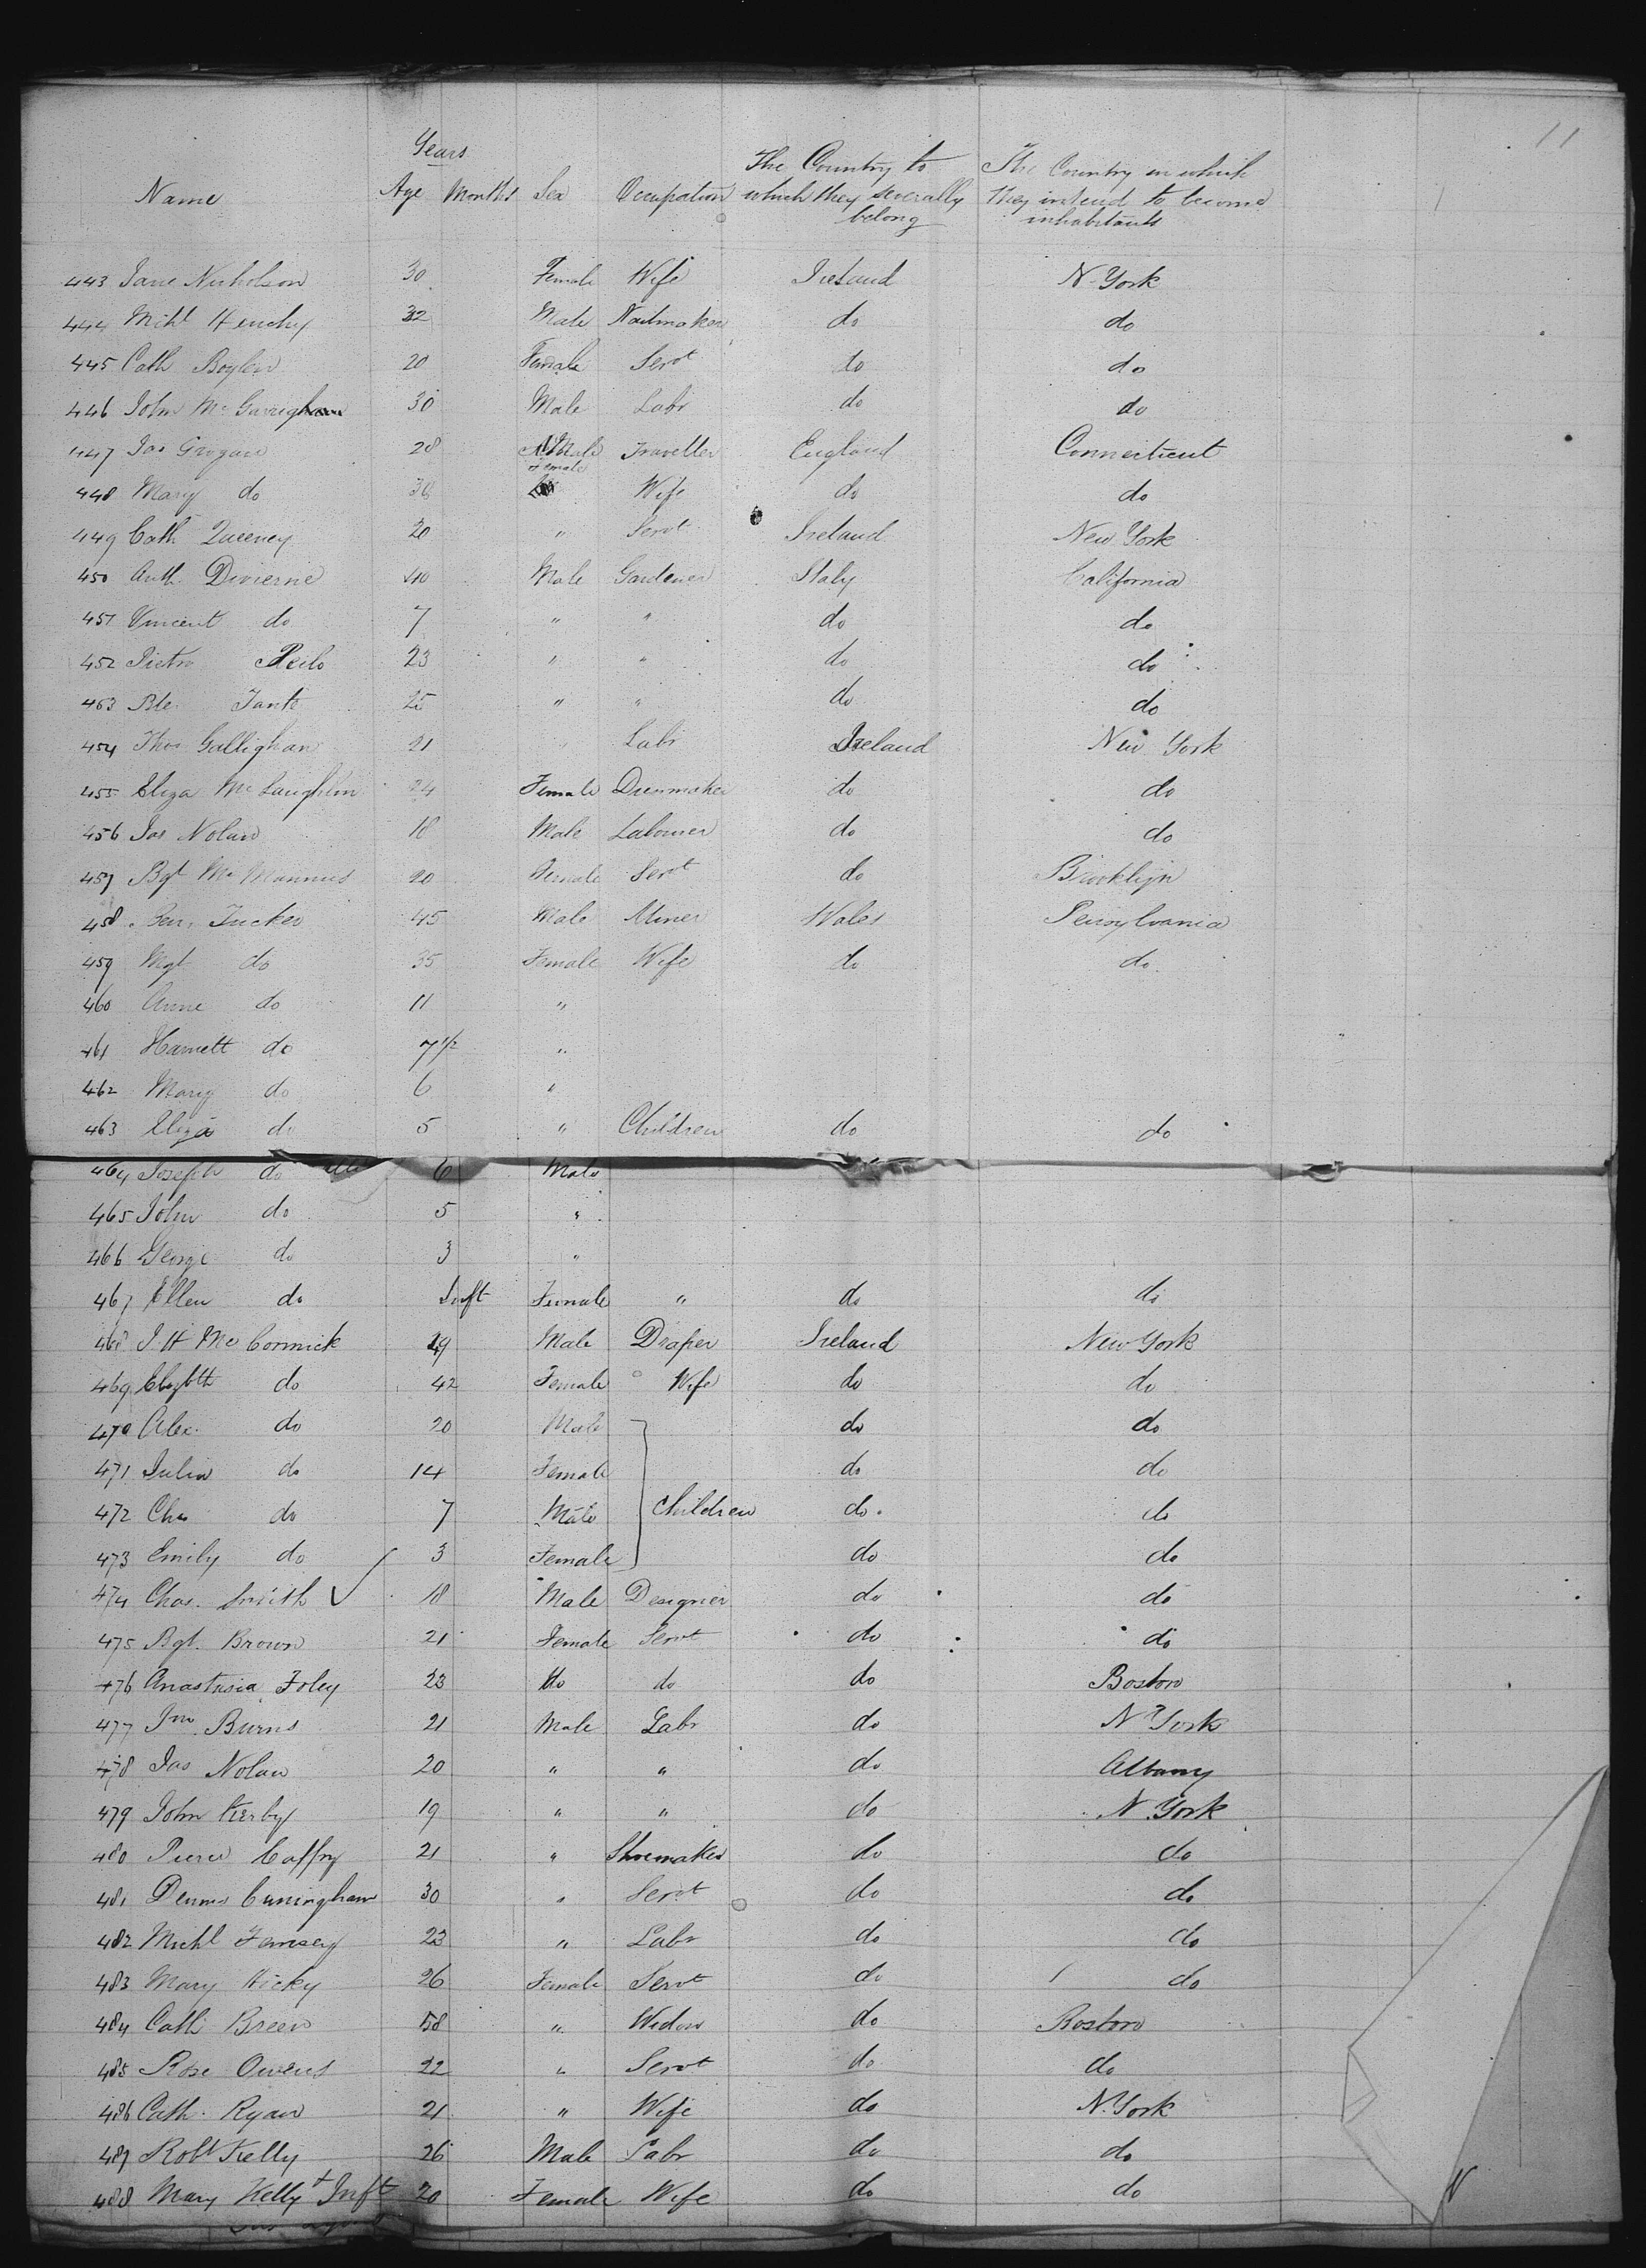 11
Years
Name Age Months Sex Occupation The Country to which they severally belong The Country in which they intend to become inhabitants
443 Jane Nicholson 30 Female Wife Ireland N York
444 Michl Henchy 32 Male Nailmaker do do
445 Cath Boylen 20 Female Servt do do
446 John Mc 30 Male Labr do do
447 Jas Grogan 28 Male Traveller England Connecticut
448 Mary do 30 Female Wife do do
449 Cath Queeney 20 " Servt Ireland New York
450 Anth. Divierne 40 Male Gardener Italy California
451 Vincent do 7 " " do do
452 Pietro 23 " " do do
453 Bte. 25 " " do do
454 Thos Gallighan 21 " Labr Ireland New York
455 Eliza Mc Laughlin 24 Female Dressmaker do do
456 Jas Nolan 18 Male Labourer do do
457 Bgt Mc Mannus 20 Female Servt do Brooklyn
458 Ben. Tucker 45 Male Miner Wales Pensylvania
459 Mgt do 35 Female Wife do do
460 Anne do 11 "
461 Harriett do 7 1/2 "
462 Mary do 6 "
463 Eliza do 5 " Children do do
464 Joseph do 6 Male
465 John do 5 "
466 George do 3 "
467 Ellen do Inft Female " do do
468 J. H Mc Cormick 49 Male Draper Ireland New York
469 Elizbth do 42 Female Wife do do
470 Alex. do 20 Male do do
471 Julia do 14 Female do do
472 Chs do 7 Male Children do do
473 Emily do 3 Female do do
474 Chas. Smith 18 Male Designer do do
475 Bgt. Brown 21 Female Servt do do
476 Anastasia Foley 23 do do do Boston
477 Jno. Burns 21 Male Labr do N York
478 Jas Nolan 20 " " do Albany
479 John Kerby 19 " " do N. York
480 Pierce Caffry 21 " Shoemaker do do
481 Dennis Cuningham 30 " Servt do do
482 Michl 23 " Labr do do
483 Mary Hicky 26 Female Servt do do
484 Cath Breen 58 " Widow do Boston
485 Rose Owens 22 " Servt do do
486 Cath. Ryan 21 " Wife do N. York
487 Robt Kelly 26 Male Labr do do
488 Mary Kelly + Inft 20 Female Wife do do